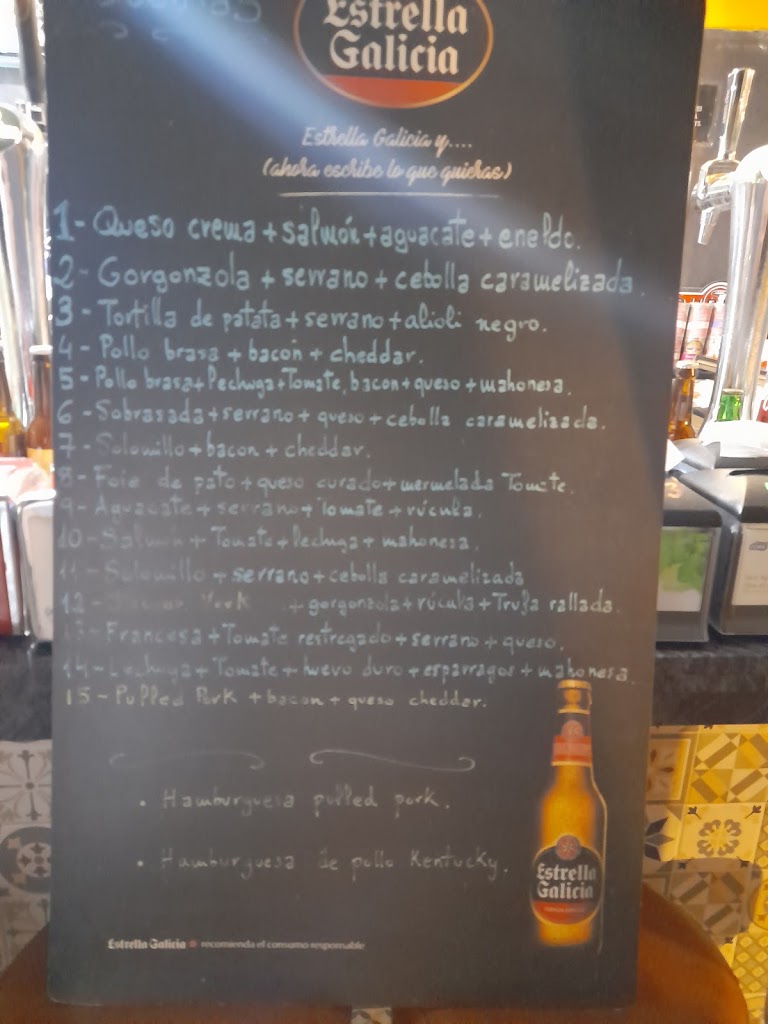 Estrella
Galicia
Estrella Galicia y....
(ahora escribe lo que quieras)
1- Queso crema + salmón + aguacate + eneldo.
2- Gorgonzola + serrano + cebolla caramelizada.
3- Tortilla de patata + serrano + alioli negro.
4- Pollo brasa + bacon + cheddar.
5- Pollo brasa + Lechuga + Tomate, bacon + queso + mahonesa.
6- Sobrasada + serrano + queso + cebolla caramelizada.
7- Solomillo + bacon + cheddar.
8- Foie de pato + queso curado + mermelada Tomate.
9- Aguacate + serrano + Tomate + rúcula.
10- Salmón + Tomate + lechuga + mahonesa.
11- Solomillo + serrano + cebolla caramelizada
12- + gorgonzola + rúcula + Trufa rallada.
13- Francesa + Tomate restregado + serrano + queso.
14- Lechuga + Tomate + huevo duro + esparragos + mahonesa.
15- Pulled Pork + bacon + queso cheddar.
• Hamburguesa pulled pork.
• Hamburguesa de pollo Kentucky.
Estrella
Galicia
Estrella Galicia recomienda el consumo responsable